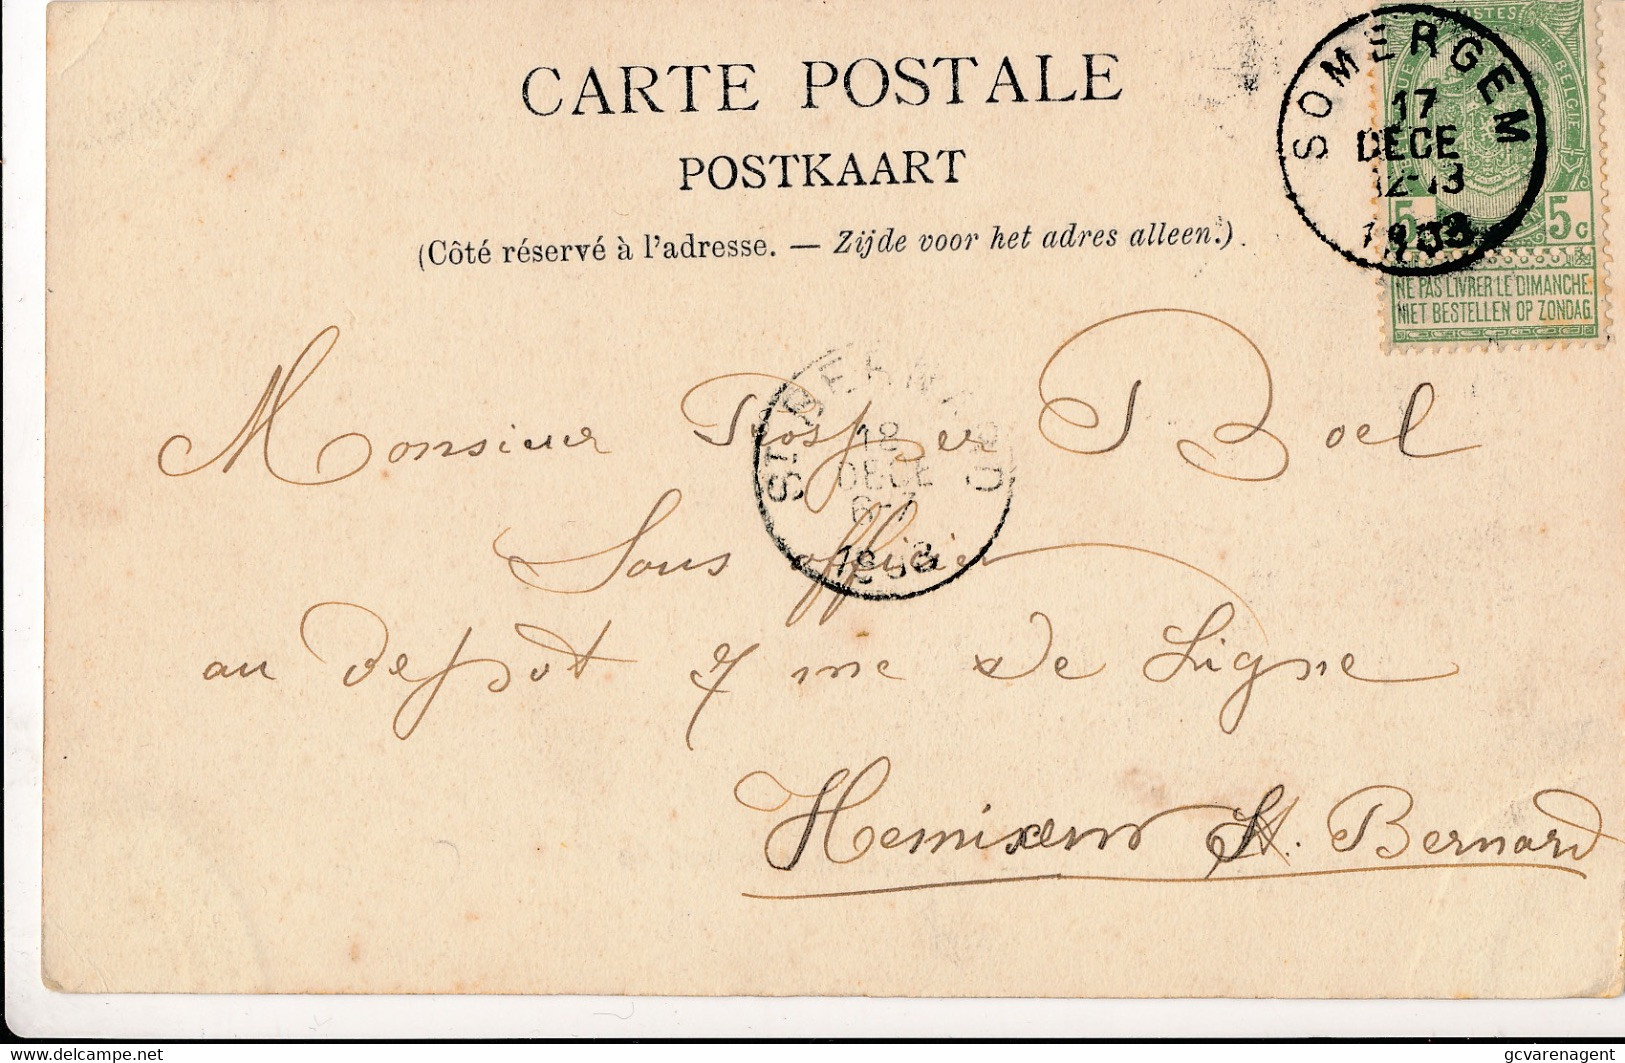 CARTE POSTALE
POSTKAART
(Côté réservé à l'adresse. — Zijde voor het adres alleen.)
SOMERGEM
17
DECE
12-13
POSTES
BELGIE
5 5c
NE PAS LIVRER LE DIMANCHE.
NIET BESTELLEN OP ZONDAG
ST BERNARD
18
DECE
6-7
Monsieur Prosper Boel
Sous officier
au depot 7me de Ligne
Hemixem St. Bernard
gcvarenagent
delcampe.net